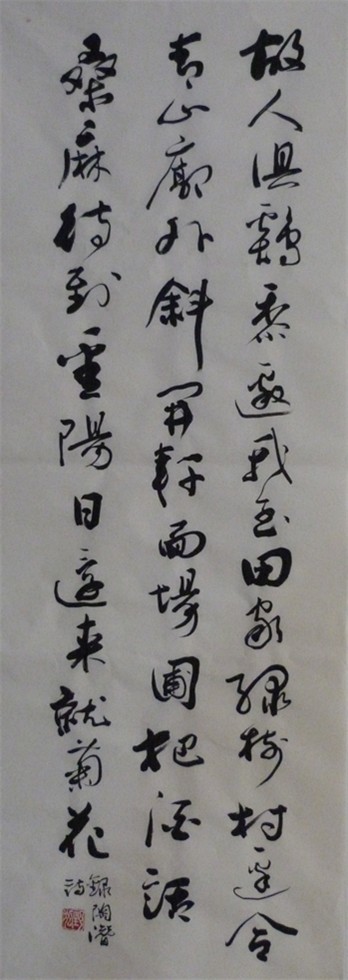 故人俱鷄黍邀我至田家綠樹村邊合
青山廓外斜開軒面場圃把酒話
桑麻待到重陽日還来就菊花
錄陶潛
詩